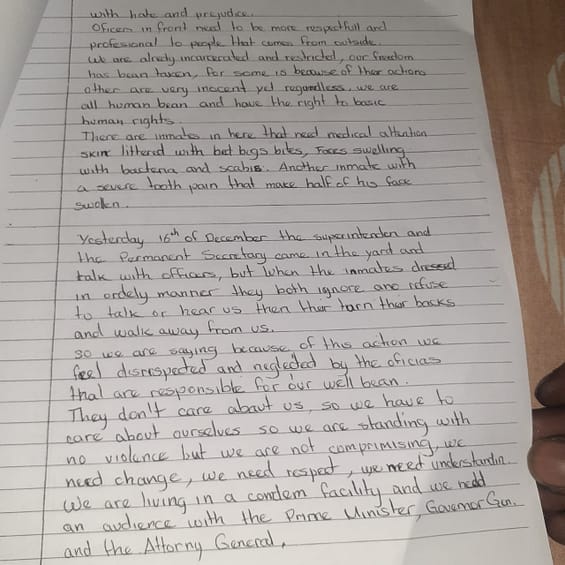 with hate and prejudice.
Oficers in front need to be more respectfull and
profesional to people that comes from outside.
We are alredy incarcerated and restricted, our freedom
has been taken, for some is because of ther actions
other are very inocent yet regardless, we are
all human bean and have the right to basic
human rights.
There are inmates in here that need medical attention
skin littered with bet bigs bites, Faces swelling
with bacteria and scabis. Another inmate with
a severe tooth pain that make half of his face
swolen.
Yesterday 16th of December the superintenden and
the Permanent Secretary came in the yard and
talk with officers, but when the inmates dressed
in ordely manner they both ignore and refuse
to talk or hear us then their turn their backs
and walk away from us.
so we are saying because of this action we
feel disrespected and negleded by the oficias
that are responsible for our well bean.
They don't care about us, so we have to
care about ourselves so we are standing with
no violence but we are not comprimising, we
need change, we need respect, we need understandin.
We are living in a condem facility and we nedd
an audience with the Prime Minister, Governor Gen.
and the Attorny General.